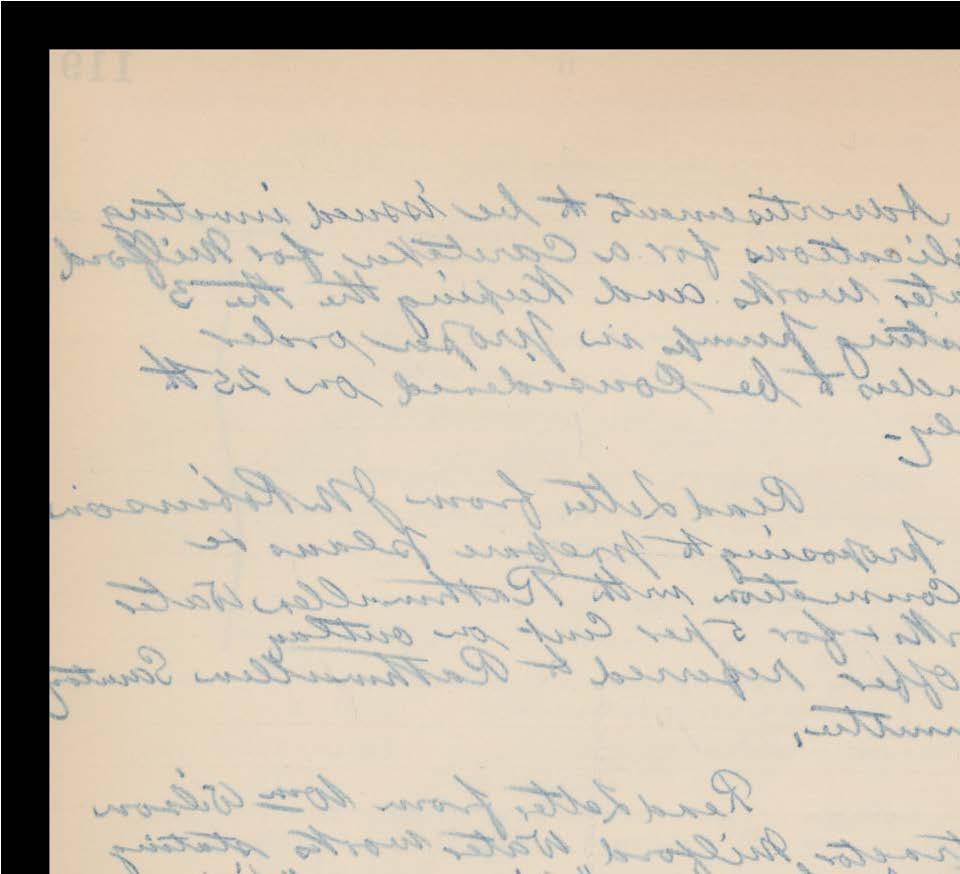 119
Advertisements to be issued inviting
plications for a Caretaker for Milford
ater works and keeping the the 3
sting pumps in proper order
nders to be Considered on 25th
ly:-
Read Letter from J M Robinson
proposing to prepare plans &c
Connection with Rathmullen Water
rks & for 5 per Cent on outlay
Offer referred to Rathmullen Sanitary
mmittee,
Read Letter from Wm Wilson
tractor, Milford Water works stating